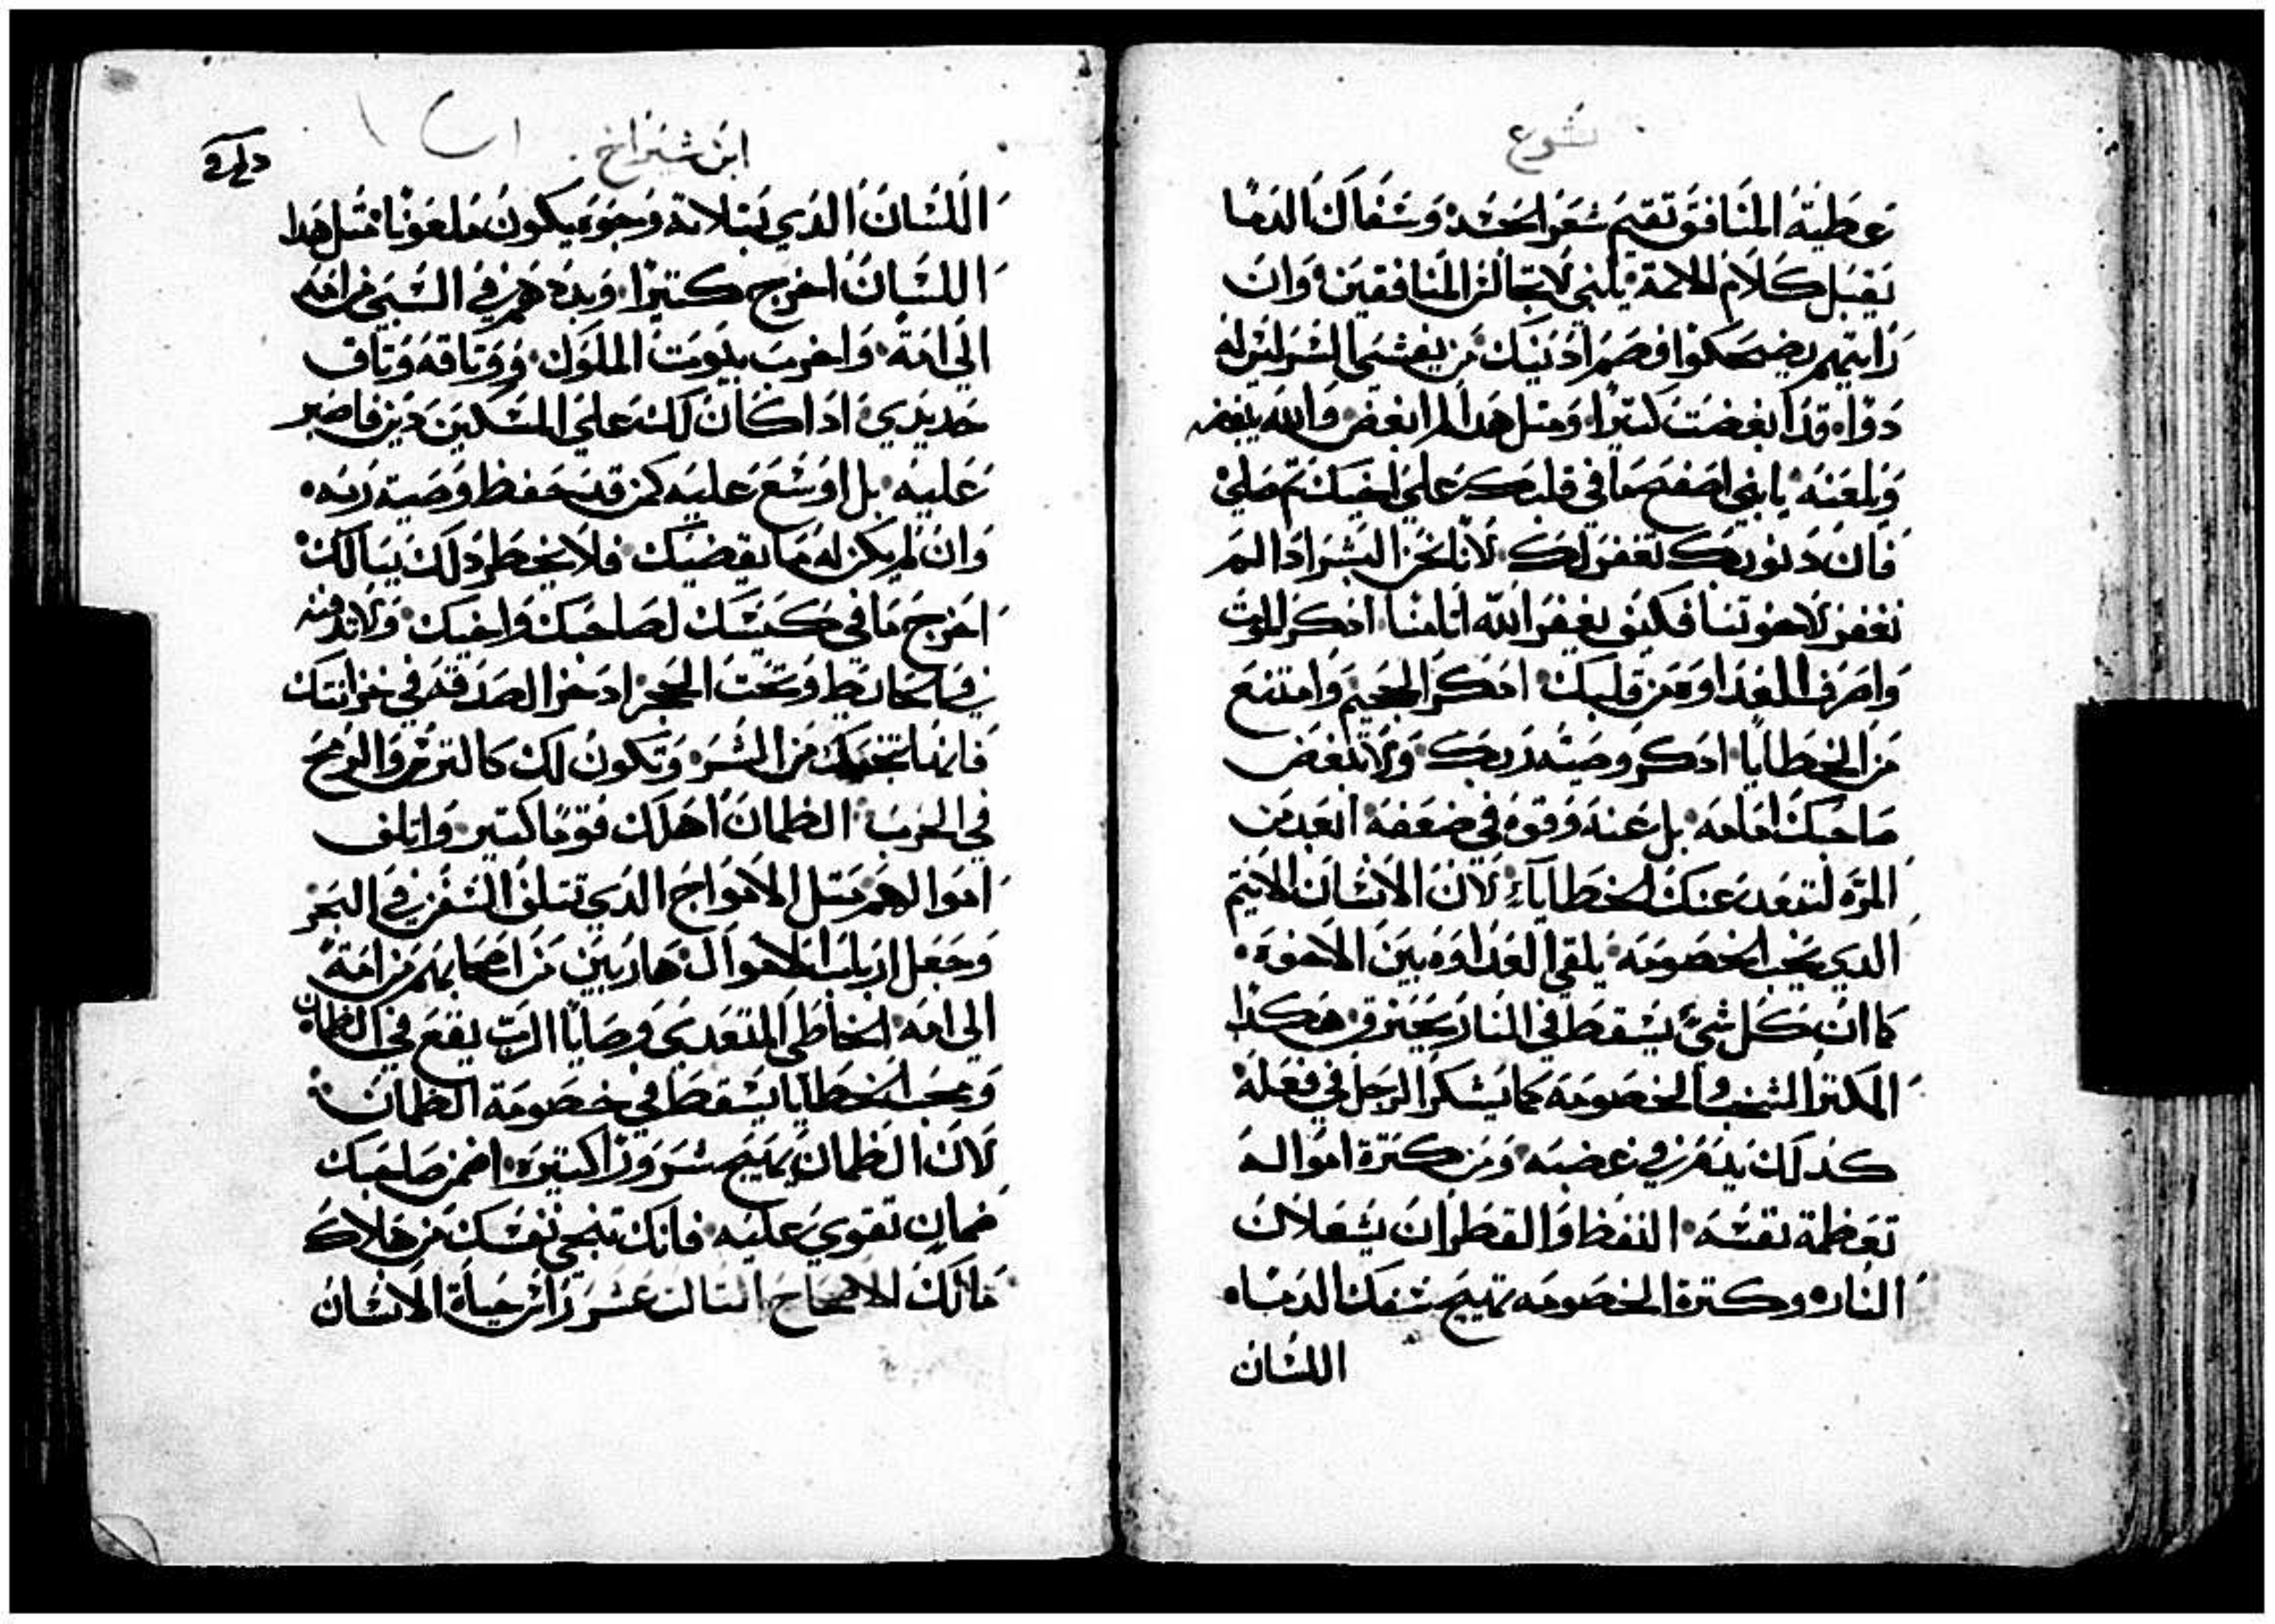 يشوع
عَطيَة المنافق تقيم شعر الجسد وسَفاك الدما
يَقبَل كلام الامة يابني لا تجالس المنافقين وان
رَايتهم يضحكوا فصم ادنيك من يفشى السر ليس له
دوا قد ابغضت كتيرا ومتل هدا لم ابغض والله يبغضه
ويلعنه يابني اصفح ما في قلبك على اخيك تم صلي
فان دنوبك تغفر لك لاننا نحن البشر ادا لم
نغفر لاخوتنا فكيف يغفر الله اتامنا ادكر الموت
واصرف العداوه من قلبك ادكر الجحيم وامتنع
من الخطايا ادكر وصية ربك ولا تبغض
صاحبك امامه بل عنده وقوه في ضعفه ابعد من
المره لتبعد عنك الخطايا لان الانسان الاتيم
الدي يحب الخصومه يلقي العداوه بين الاخوه
كما ان كل شي يسقط في النار يحترق هكدا
المكتر الشغب والخصومه كما يسكر الرجل في فعله
كدلك يدمر في غضبه ومن كترة امواله
تعظمة نفسه النفظ والقطران يشعلان
النار وكترة الخصومه تهيج سفك الدما
اللسان
ابن شيراخ
اللسان الدي بتلاتة وجوه يكون ملعونا متل هدا
اللسان اخرج كتيرا وبددهم في السبي من امه
الي امة واخرب بيوت الملوك ووتاقه وتاق
حديدي ادا كان لك على المسكين دين فاصبر
عليه بل اوسع عليه كمن قد حفظ وصية ربه
وان لم يكن له ما يقضيك فلا يخطر دلك ببالك
اخرج ما في كيسك لصاحبك واخيك ولا تدفنه
في حايط وتحت الحجر ادخر الصدقه في خزانتك
فانها تنجيك من الشر وتكون لك كالترس والرمح
في الحرب الظمان اهلك قوما كتير واتلف
اموالهم متل الامواج الدي تتلف السفن في البحر
وجعل ارباب الاموال هاربين من اصحابهم من امة
الى امه الخاطي المتعدي وصايا الرب يقع في الظمان
ومحب الخطايا يسقط في خصومة الظمان
لان الظمان يهيج شرورا كتيره اضمن صاحبك
ضمان تقوي عليه فانك تنجي نفسك من هلاك
مالك الاصحاح التالت عشر راس حياة الانسان